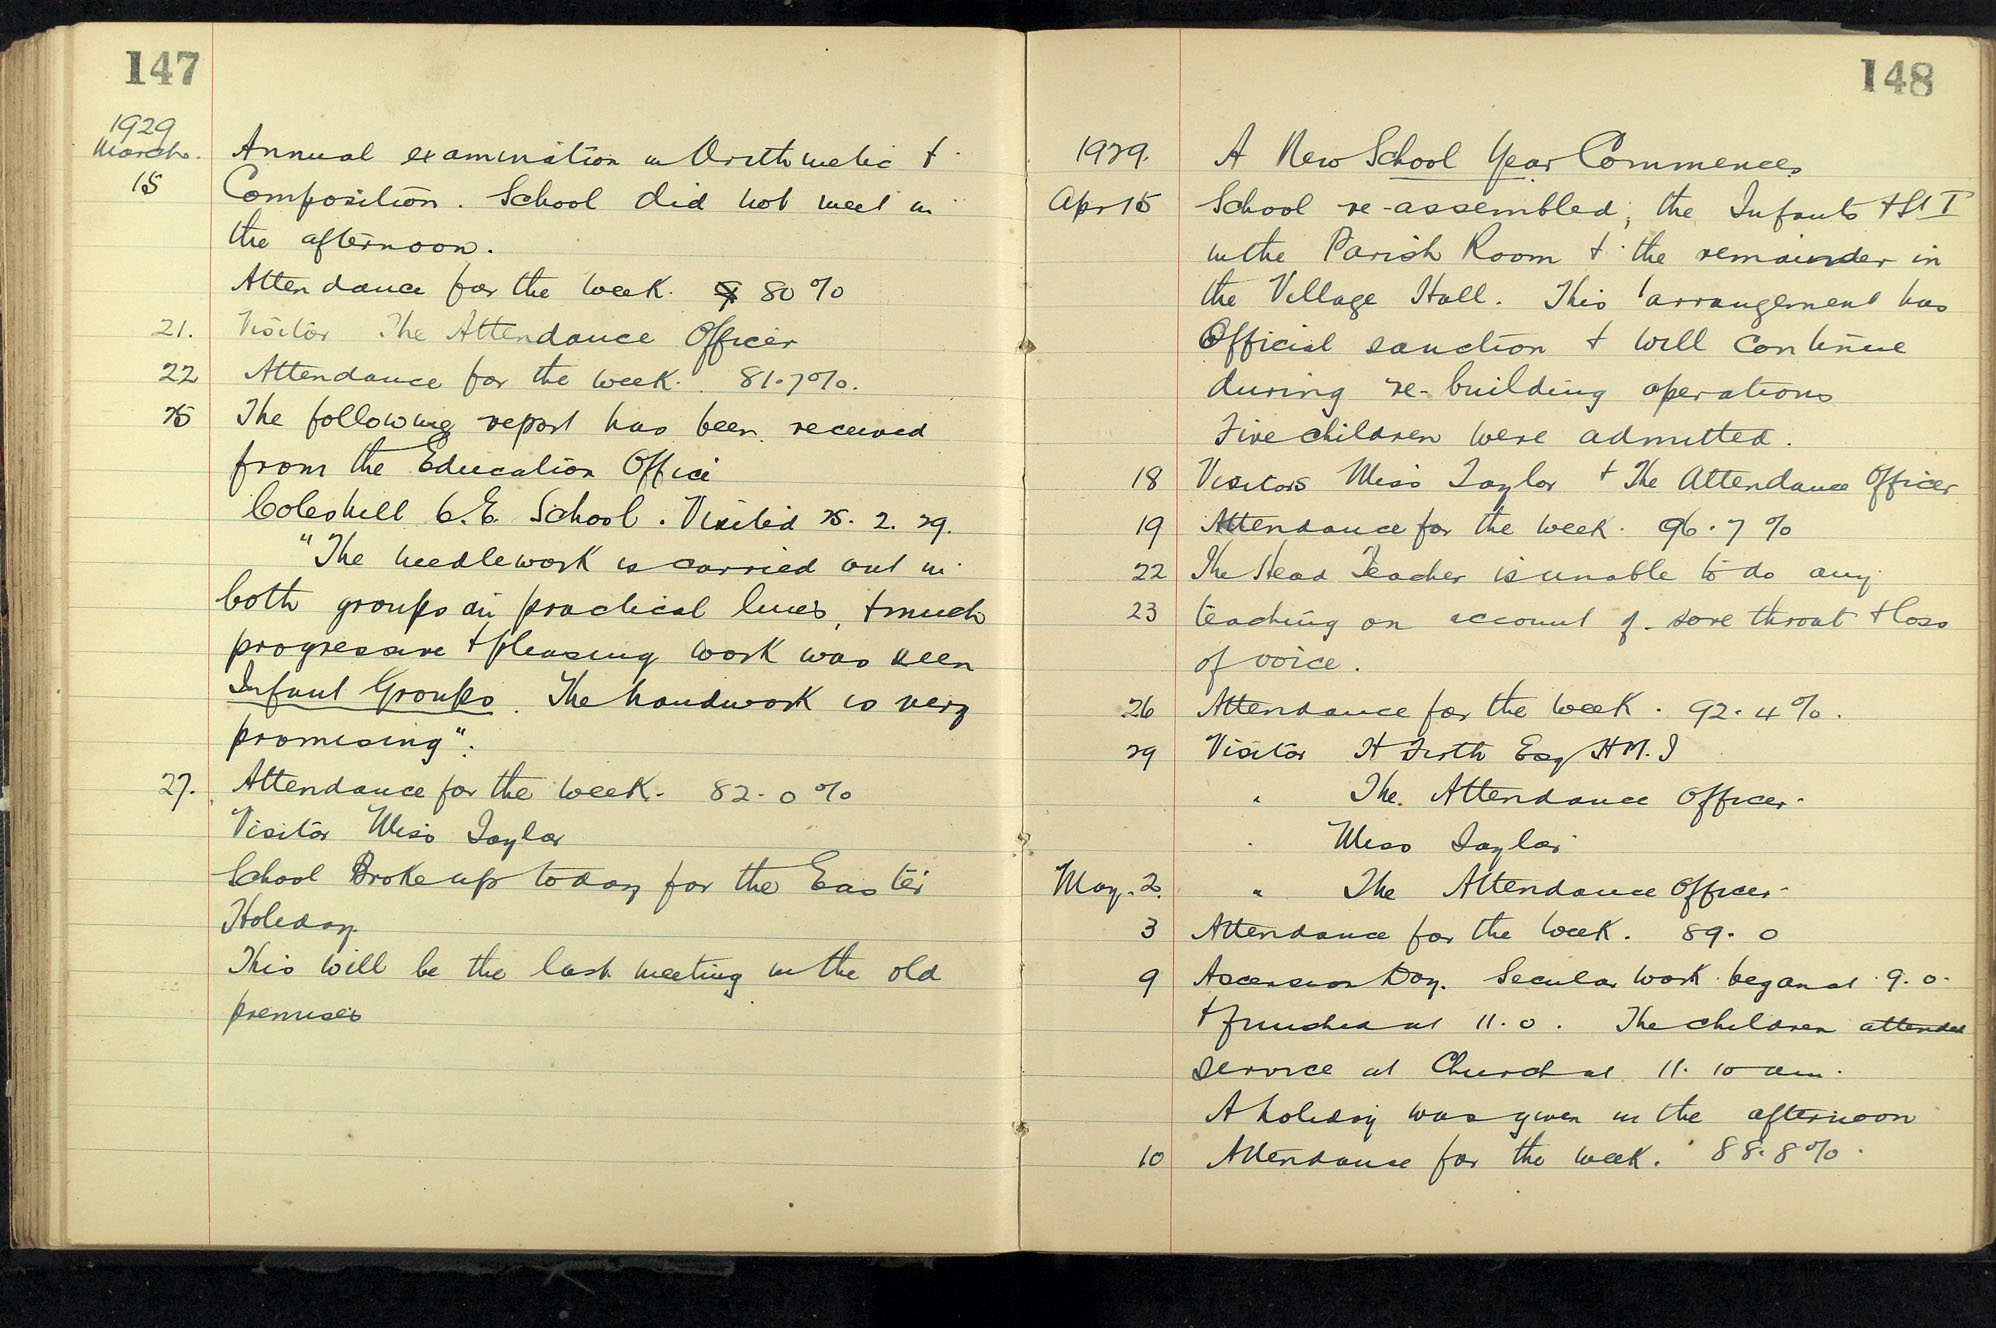 147
1929
March.
Annual examination in Arithmetic +
15 Composition. School did not meet in
the afternoon.
Attendance for the week. 80 %
21. Visitor The Attendance Officer
22 Attendance for the week. 81.7%.
25 The following report has been received
from the Education Office
Coleshill C.E. School. Visited 25. 2. 29.
"The needlework is carried out in
both groups on practical lines, + much
progressive + pleasing work was seen
Infant Groups. The handwork is very
promising".
27. Attendance for the week. 82.0 %
Visitor Miss Taylor
School Broke up today for the Easter
Holiday
This will be the last meeting in the old
premises
148
1929. A New School Year Commences
Apr 15 School re-assembled; the Infants + St I
in the Parish Room + the remainder in
the Village Hall. This arrangement has
Official sanction + will continue
during re-building operations
Five children were admitted.
18 Visitors Miss Taylor + The Attendance Officer
19 Attendance for the week. 96.7 %
22 The Head Teacher is unable to do any
23 teaching on account of sore throat + loss
of voice.
26 Attendance for the week. 92.4%.
29 Visitor H Firth Esq H.M.I
" The Attendance Officer.
" Miss Taylor
May. 2. " The Attendance Officer.
3 Attendance for the week. 89.0
9 Ascension Day. Secular work began at 9.0.
+ finished at 11.0. The children attended
service at Church at 11.10 am.
A holiday was given in the afternoon
10 Attendance for the week. 88.8%.